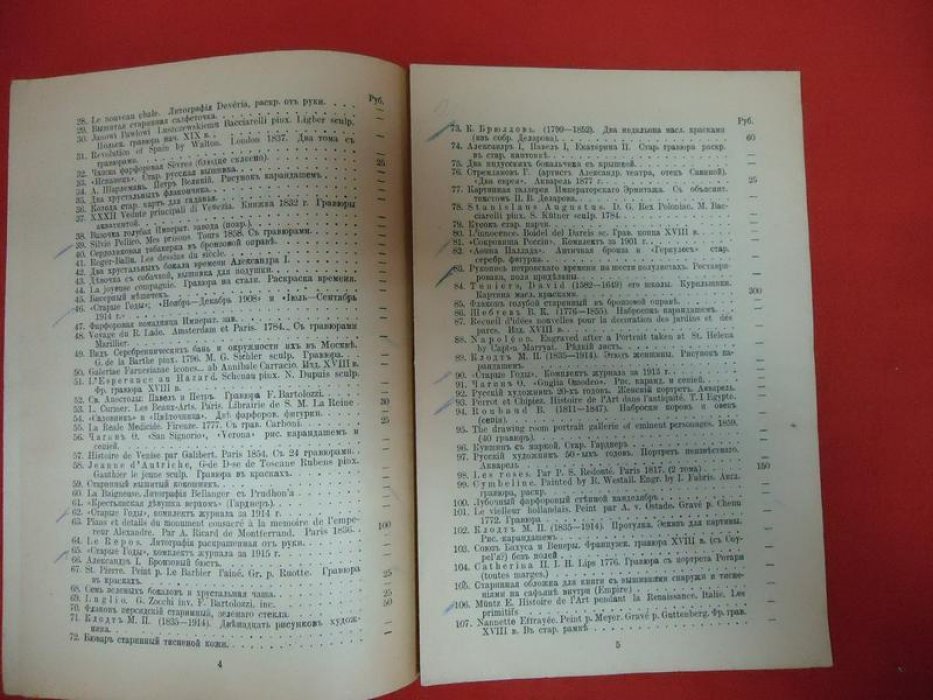 Руб.
28. Le nouveau chale. Литографія Devéria, раскр. отъ руки.
29. Вышитая старинная салфеточка.
30. Janowi Pawlowi Luszczewskiemu Bacciarelli pinx. Ligber sculp.
Польск. гравюра нач. XIX в.
31. Revolution of Spain by Walton. London 1837. Два тома съ
гравюрами.
32. Чашка фарфоровая Sèvres (блюдце склеено). 25
33. «Испанецъ». Стар. русская вышивка. —
34. А. Шарлемань. Петръ Великій. Рисунокъ карандашемъ. —
35. Два хрустальныхъ флакончика. —
36. Колода стар. картъ для гаданья. —
37. XXXII Vedute principali di Venezia. Книжка 1832 г. Гравюры
акватинтой. —
38. Вазочка голубая Императ. завода (повр.). —
39. Silvio Pellico. Mes prisons. Tours 1858. Съ гравюрами. —
40. Сердоликовая табакерка въ бронзовой оправѣ. —
41. Roger-Balin. Les dessins du siècle. —
42. Два хрустальныхъ бокала времени Александра I. —
43. Дѣвочка съ собачкой, вышивка для подушки. —
44. La joyeuse compagnie. Гравюра на стали. Раскраска времени. —
45. Бисерный мѣшечекъ. —
46. «Старые Годы», «Ноябрь—Декабрь 1908» и «Іюль—Сентябрь
1914 г.» —
47. Фарфоровая помадница Императ. зав. —
48. Voyage du R. Lade. Amsterdam et Paris. 1784. Съ гравюрами
Marillier. —
49. Видъ Серебренническихъ бань и окружности ихъ въ Москвѣ.
G. de la Barthe pinx. 1796. M. G. Eichler sculp. Гравюра. —
50. Galeriae Farnesianae icones... ab Annibale Carracio. Изд. XVIII в. —
51. L'Esperance au Hazard. Schenau pinx. N. Dupuis sculp.
Фр. гравюра XVIII в. —
52. Св. Апостолы Павелъ и Петръ. Гравюра F. Bartolozzi. —
53. L. Curmer. Les Beaux-Arts. Paris. Librairie de S. M. La Reine 30
54. «Садовникъ» и «Цвѣточница». Двѣ фарфоров. фигурки. —
55. La Reale Medicide. Firenze. 1777. Съ грав. Carboni. 25
56. Чагинъ О. «San Signorio», «Verona» рис. карандашемъ и
сепіей. —
57. Histoire de Venise par Galibert. Paris 1854. Съ 24 гравюрами. —
58. Jeanne d'Autriche, G-de D-se de Toscane Rubens pinx.
Gauthier le jeune sculp. Гравюра въ краскахъ. —
59. Старинный вышитый кокошникъ. —
60. La Baigneuse. Литографія Bellanger съ Prudhon'a —
61. «Крестьянская дѣвушка верхомъ» (Гарднеръ). —
62. «Старые Годы», комплектъ журнала за 1914 г. —
63. Plans et details du monument consacré à la memoire de l'empe-
reur Alexandre. Par A. Ricard de Montferrand. Paris 1836. 100
64. Le Repos. Литографія раскрашенная отъ руки. —
65. «Старые Годы», комплектъ журнала за 1915 г. —
66. Александръ I. Бронзовый бюстъ. —
67. St. Pierre. Peint p. Le Barbier l'ainé. Gr. p. Ruotte. Гравюра
въ краскахъ. 25
68. Семь зеленыхъ бокаловъ и хрустальная чаша. —
69. Luglio. G. Zocchi inv. F. Bartolozzi, inc. 25
70. Флаконъ персидскій старинный, зеленаго стекла. 50
71. Клодтъ М. П. (1835—1914). Двѣнадцать рисунковъ худож-
ника. —
72. Бюваръ старинный тисненой кожи. —
4
Руб.
73. К. Брюлловъ. (1799—1852). Два медальона масл. красками
(изъ собр. Деларова). 60
74. Александръ I, Павелъ I, Екатерина II. Стар. гравюра раскр.
въ стар. кантонкѣ. —
75. Два индусскихъ бокальчика съ крышкой. —
76. Стремлановъ Г. (артистъ Александр. театра, отецъ Савиной).
«Два еврея». Акварель 1877 г. 25
77. Картинная галлерея Императорскаго Эрмитажа. Съ объяснит.
текстомъ П. В. Деларова. —
78. Stanislaus Augustus. D. G. Rex Poloniae. M. Bac-
ciarelli pinx. S. Kütner sculp. 1784. —
79. Кусокъ стар. парчи. —
80. L'innocence. Boidel del Dareis sc. Грав. конца XVIII в. —
81. «Сокровища Россіи». Комплектъ за 1901 г. —
82. «Аѳина Паллада». Античная бронза и «Геркулесъ» стар.
серебр. фигурка. —
83. Рукопись петровскаго времени на шести полулистахъ. Реставри-
рована, поля придѣланы. —
84. Teniers, David (1582—1649) его школы. Курильщики.
Картина масл. красками. 300
85. Флаконъ голубой старинный въ бронзовой оправѣ. —
86. Шебуевъ В. К. (1776—1855). Набросокъ карандашемъ. —
87. Recueil d'idées nouvelles pour la decoration des jardins et des
parcs. Изд. XVIII в. —
88. Napoléon. Engraved after a Portrait taken at St. Helena
by Capt-n Marryat. Рѣдкій листъ. —
89. Клодтъ М. П. (1835—1914). Эскизъ женщины. Рисунокъ ка-
рандашемъ. —
90. «Старые Годы». Комплектъ журнала за 1915 г. —
91. Чагинъ О. «Guglia Omodeo». Рис. каранд. и сепіей. —
92. Русскій художникъ 20-хъ годовъ. Женскій портретъ. Акварель. —
93. Perrot et Chipiez. Histoire de l'Art dans l'antiquité. T. I Egypte. —
94. Roubaud B. (1811—1847). Наброски коровъ и овецъ
(сепія). —
95. The drawing room portrait gallerie of eminent personages. 1859.
(40 гравюръ). —
96. Кувшинъ съ маркой. Стар. Гарднеръ. —
97. Русскій художникъ 50-ыхъ годовъ. Портретъ неизвѣстнаго.
Акварель. —
98. Les roses. Par P. S. Redouté. Paris 1817. (2 тома) 150
99. Cymbeline. Painted by R. Westall. Engr. by I. Fabris. Англ.
гравюра, раскр. —
100. Лубочный фарфоровый стѣнной канделябръ. —
101. Le vieilleur hollandais. Peint par A. v. Ostade. Gravé p. Chenu
1772. Гравюра. —
102. Клодтъ М. П. (1835—1914). Прогулка. Эскизъ для картины.
Рис. карандашемъ. —
103. Союзъ Бахуса и Венеры. Французск. гравюра XVIII в. (съ Coy-
pel'a?) безъ полей —
104. Catherina II. I. H. Lips 1776. Гравюра съ портрета Ротари
(toutes marges). —
105. Старинная обложка для книги съ вышивками снаружи и тисне-
ніями на сафьянѣ внутри (Empire) —
106. Müntz E. Histoire de l'Art pendant la Renaissance. Italie. Les
primitifs —
107. Nannette Effrayée. Peint p. Meyer. Gravé p. Guttenberg. Фр. грав.
XVIII в. Въ стар. рамкѣ —
5